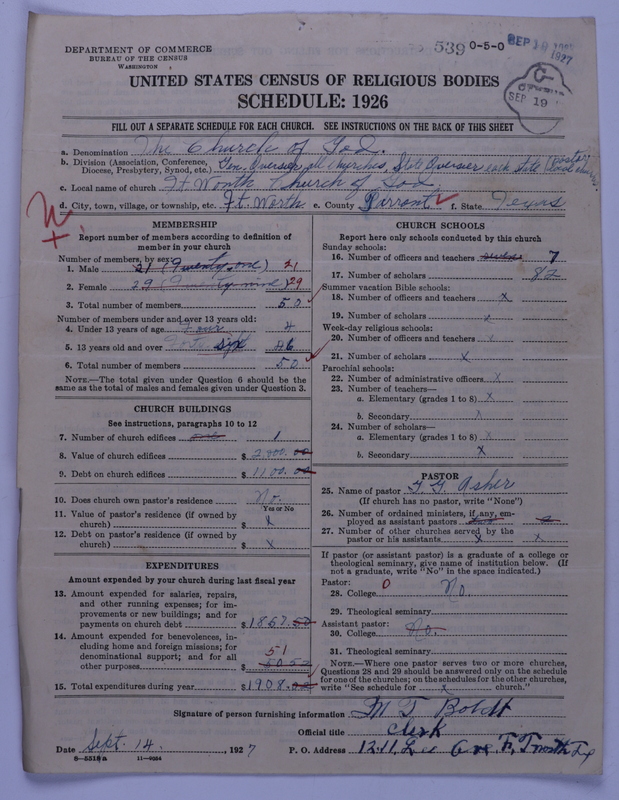 DEPARTMENT OF COMMERCE
BUREAU OF THE CENSUS
WASHINGTON
539 0-5-0
SEP 19 1927
SEP 19
UNITED STATES CENSUS OF RELIGIOUS BODIES
SCHEDULE: 1926
FILL OUT A SEPARATE SCHEDULE FOR EACH CHURCH. SEE INSTRUCTIONS ON THE BACK OF THIS SHEET
a. Denomination The Church of God.
b. Division (Association, Conference, Diocese, Presbytery, Synod, etc.) Gen. Overseer all churches, State Overseer each state (pastor local church)
c. Local name of church Ft Worth Church of God
d. City, town, village, or township, etc. Ft. Worth e. County Parrant f. State Texas
MEMBERSHIP
Report number of members according to definition of member in your church
Number of members, by sex:
1. Male 21 (Twenty one) 21
2. Female 29 (Twenty nine) 29
3. Total number of members 50
Number of members under and over 13 years old:
4. Under 13 years of age Four 4
5. 13 years old and over Forty six 46
6. Total number of members 50
NOTE.—The total given under Question 6 should be the same as the total of males and females given under Question 3.
CHURCH BUILDINGS
See instructions, paragraphs 10 to 12
7. Number of church edifices 1
8. Value of church edifices $ 2,000.00
9. Debt on church edifices $ 1100.00
10. Does church own pastor's residence No.
Yes or No
11. Value of pastor's residence (if owned by church) $ x
12. Debt on pastor's residence (if owned by church) $ x
EXPENDITURES
Amount expended by your church during last fiscal year
13. Amount expended for salaries, repairs, and other running expenses; for improvements or new buildings; and for payments on church debt $ 1857.50
14. Amount expended for benevolences, including home and foreign missions; for denominational support; and for all other purposes 51 50.52
15. Total expenditures during year $ 1908.02
CHURCH SCHOOLS
Report here only schools conducted by this church
Sunday schools:
16. Number of officers and teachers seven 7
17. Number of scholars 82
Summer vacation Bible schools:
18. Number of officers and teachers x
19. Number of scholars x
Week-day religious schools:
20. Number of officers and teachers x
21. Number of scholars x
Parochial schools:
22. Number of administrative officers x
23. Number of teachers—
a. Elementary (grades 1 to 8) x
b. Secondary x
24. Number of scholars—
a. Elementary (grades 1 to 8) x
b. Secondary x
PASTOR
25. Name of pastor F. G. Asher
(If church has no pastor, write "None")
26. Number of ordained ministers, if any, employed as assistant pastors
27. Number of other churches served by the pastor or his assistants x x
If pastor (or assistant pastor) is a graduate of a college or theological seminary, give name of institution below. (If not a graduate, write "No" in the space indicated.)
Pastor: 0
28. College No.
29. Theological seminary
Assistant pastor:
30. College No.
31. Theological seminary
NOTE.—Where one pastor serves two or more churches, Questions 28 and 29 should be answered only on the schedule for one of the churches; on the schedules for the other churches, write "See schedule for x church."
Signature of person furnishing information M T Boldt
Official title Clerk
Date Sept. 14. 1927 P. O. Address 1211 Lee Ave. Ft Worth Tex
8—5518a 11—9564